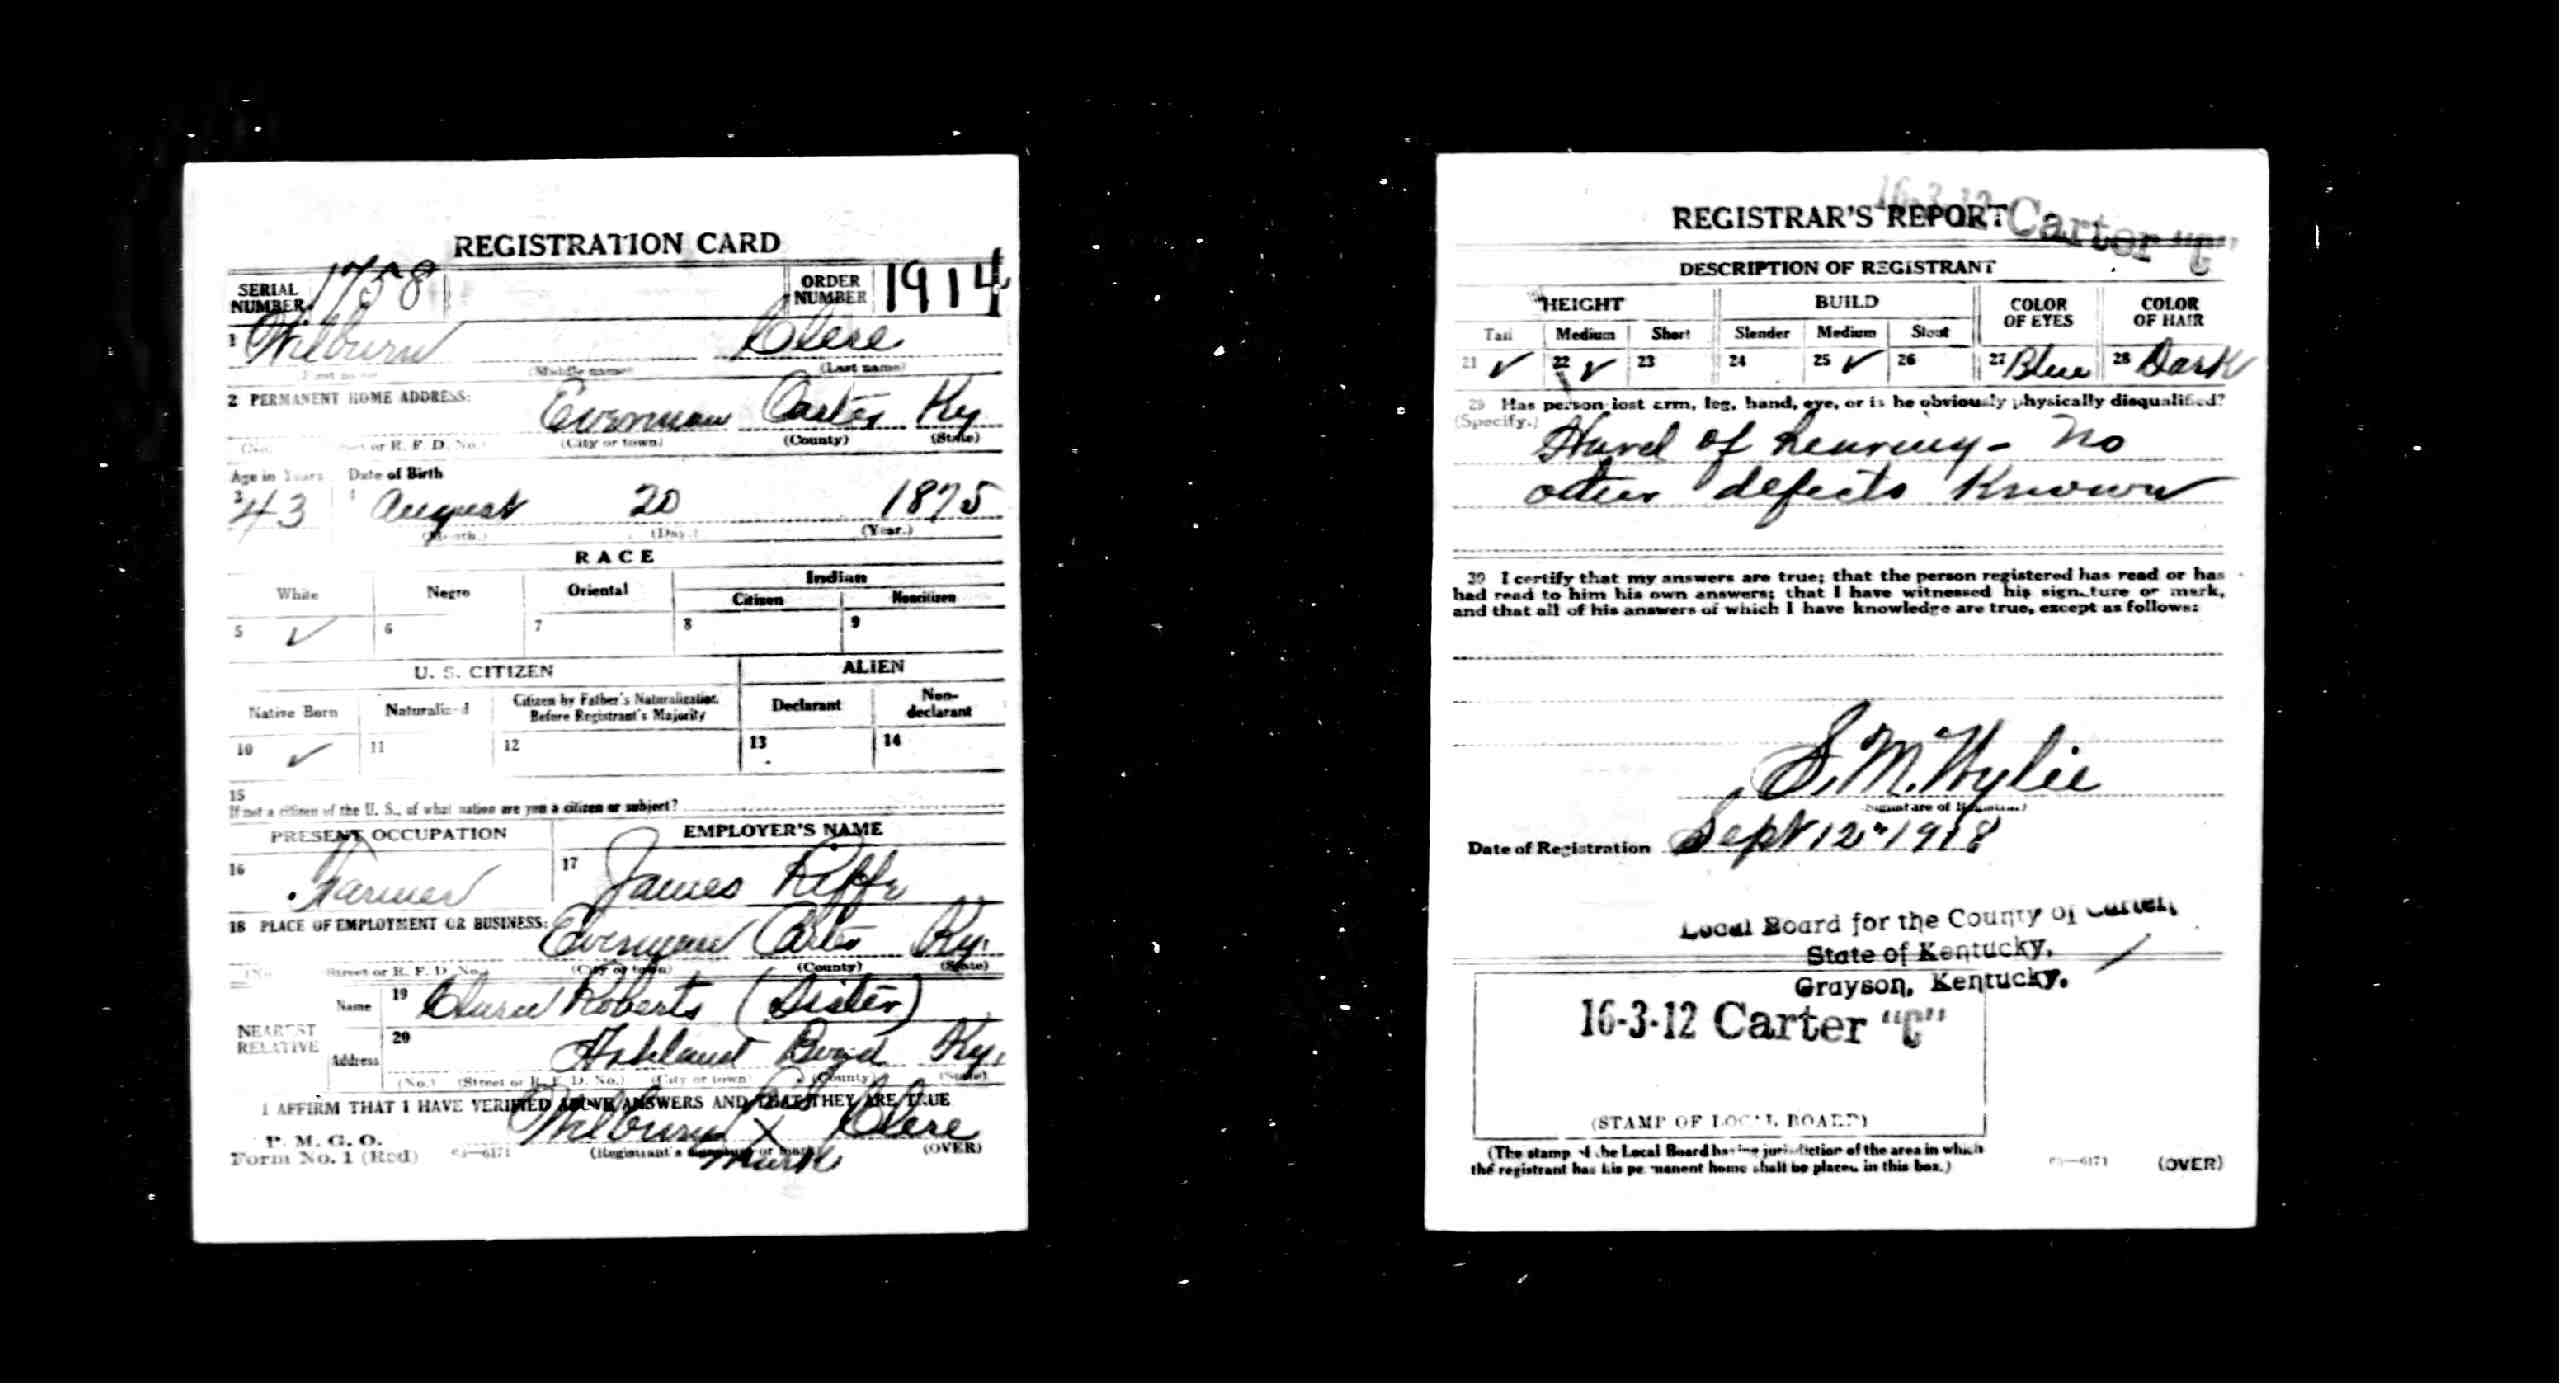 REGISTRATION CARD
SERIAL NUMBER 1758 ORDER NUMBER 1914
1 Wilburn Clere
(Middle name) (Last name)
2 PERMANENT HOME ADDRESS:
Everman Carter Ky
or R. F. D. No. (City or town) (County) (State)
Age in Years Date of Birth
3 43 August 20 1875
(Month.) (Day.) (Year.)
RACE
White Negro Oriental Indian
Citizen Noncitizen
5 ✓ 6 7 8 9
U. S. CITIZEN ALIEN
Native Born Naturalized Citizen by Father's Naturalization Before Registrant's Majority Declarant Non-declarant
10 ✓ 11 12 13 14
15
If not a citizen of the U. S., of what nation are you a citizen or subject?
PRESENT OCCUPATION EMPLOYER'S NAME
16 Farmer 17 James Riffe
18 PLACE OF EMPLOYMENT OR BUSINESS:
Everman Carter Ky.
(No.) Street or R. F. D. No. (City or town) (County) (State)
NEAREST RELATIVE
Name 19 Roberts (Sister)
Address 20 Ashland Boyd Ky.
(No.) (Street or R. F. D. No.) (City or town) (County) (State)
I AFFIRM THAT I HAVE VERIFIED ABOVE ANSWERS AND THAT THEY ARE TRUE
Wilburn X Clere
mark
P. M. G. O.
Form No. 1 (Red) 03—6171 (Registrant's signature or mark) (OVER)
16-3-12 Carter "C"
REGISTRAR'S REPORT
DESCRIPTION OF REGISTRANT
HEIGHT BUILD COLOR OF EYES COLOR OF HAIR
Tall Medium Short Slender Medium Stout
21 ✓ 22 ✓ 23 24 25 ✓ 26 27 Blue 28 Dark
29 Has person lost arm, leg, hand, eye, or is he obviously physically disqualified?
(Specify.)
Hard of hearing - no
other defects Known
30 I certify that my answers are true; that the person registered has read or has
had read to him his own answers; that I have witnessed his signature or mark,
and that all of his answers of which I have knowledge are true, except as follows:
S. M. Wylie
(Signature of Registrar)
Date of Registration Sept 12 - 1918
Local Board for the County of Carter,
State of Kentucky,
Grayson, Kentucky.
16-3-12 Carter "C"
(STAMP OF LOCAL BOARD)
(The stamp of the Local Board having jurisdiction of the area in which
the registrant has his permanent home shall be placed in this box.)
03—6171 (OVER)